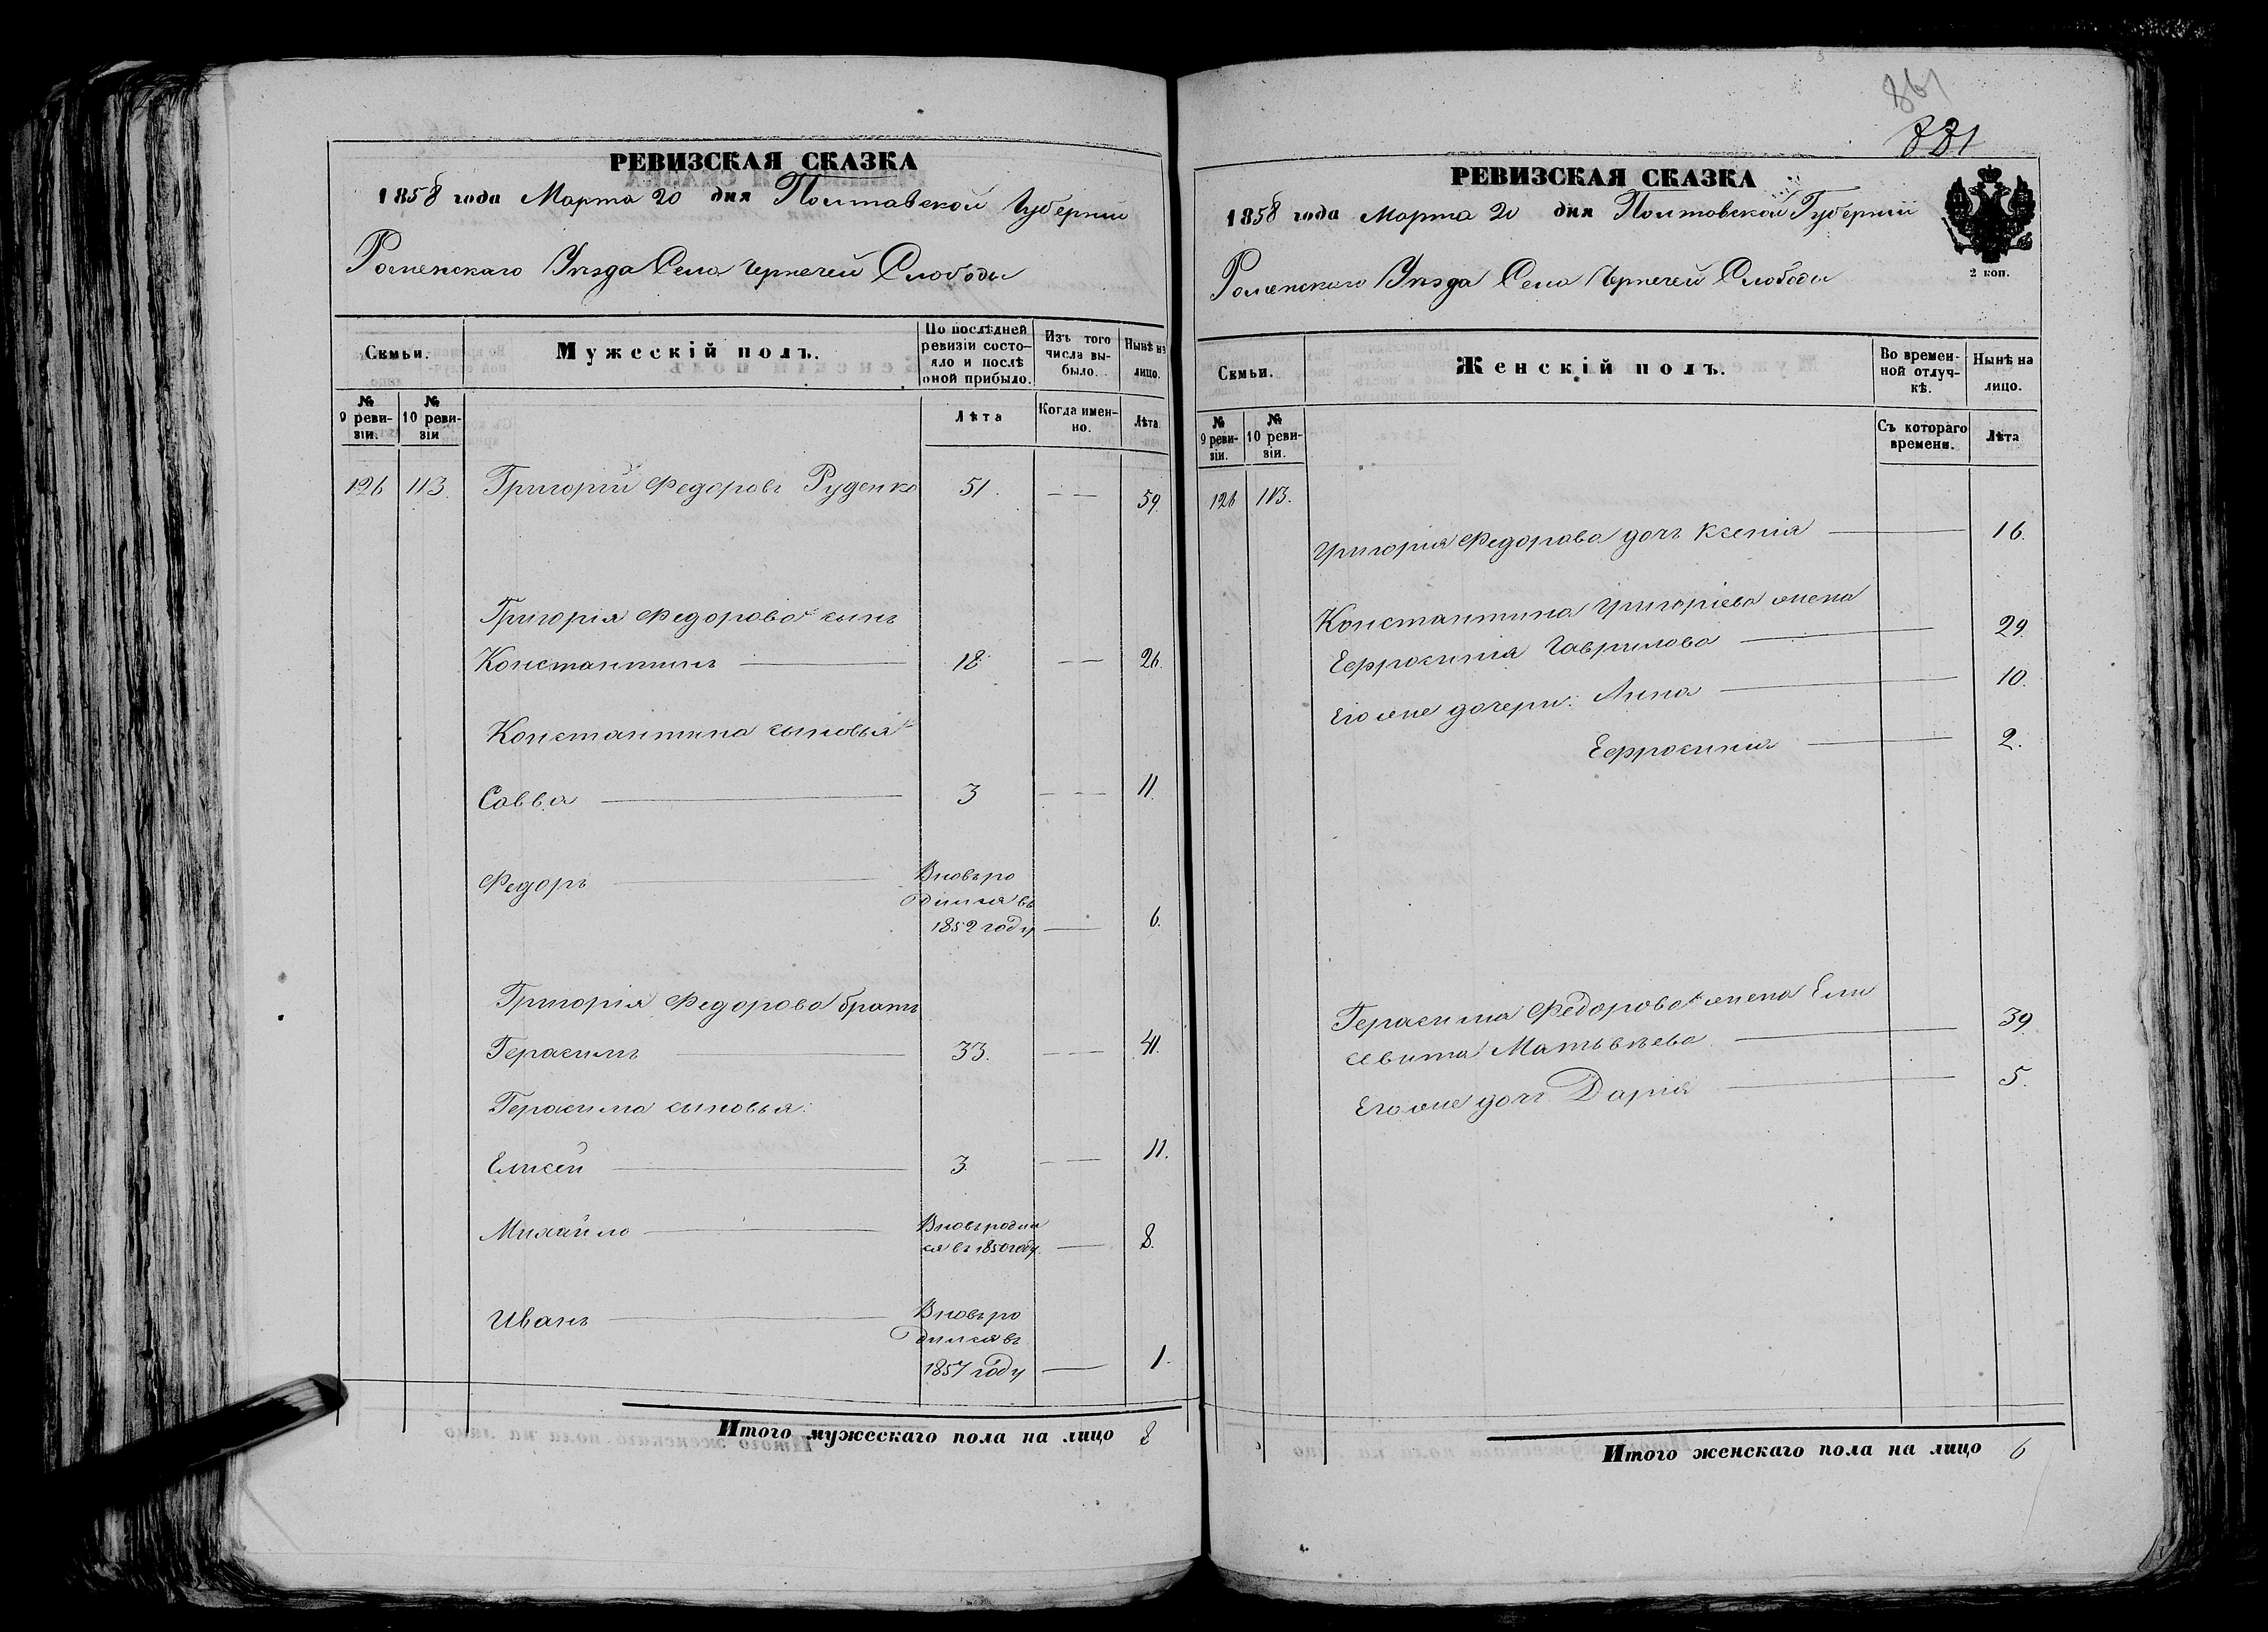 РЕВИЗСКАЯ СКАЗКА
1858 года Марта 20 дня Полтавской Губернии
Роменскаго Уезда Села Чернечей Слободы
Семьи.
Мужескій полъ.
По послѣдней ревизіи состояло и послѣ оной прибыло.
Изъ того числа выбыло.
Нынѣ на лицо.
№ 9 ревизіи.
№ 10 ревизіи
Лѣта
Когда именно.
Лѣта.
126 113. Григорій Федоровъ Руденко 51. — — 59.
Григорія Федорова сынъ
Константинъ — 18 — — 26.
Константина сыновья
Савва — 3 — — 11.
Федоръ — Вновь ро
дился въ
1852 году — 6.
Григорія Федорова братъ
Герасимъ — 33. — — 41.
Герасима сыновья:
Елисей — 3. — — 11.
Михайло — Вновь родил
ся въ 1850 году — 8.
Иванъ — Вновь ро
дился въ
1857 году — 1.
Итого мужескаго пола на лицо 8
861
881
РЕВИЗСКАЯ СКАЗКА
1858 года Марта 20 дня Полтавской Губерніи
Роменскаго Уезда Села Чернечей Слободы
2 коп.
Семьи.
Женскій полъ.
Во временной отлучкѣ.
Нынѣ на лицо.
№ 9 ревизіи.
№ 10 ревизіи.
Съ котораго времени.
Лѣта
126 113.
Григорія Федорова дочь Ксенія — 16.
Константина Григоріева жена
Ефросинія Гаврилова — 29.
Его же дочери: Анна — 10.
Ефросинія — 2.
Герасима Федорова жена Ели
савита Матвѣева — 39.
Его же дочь Дарія — 5.
Итого женскаго пола на лицо 6